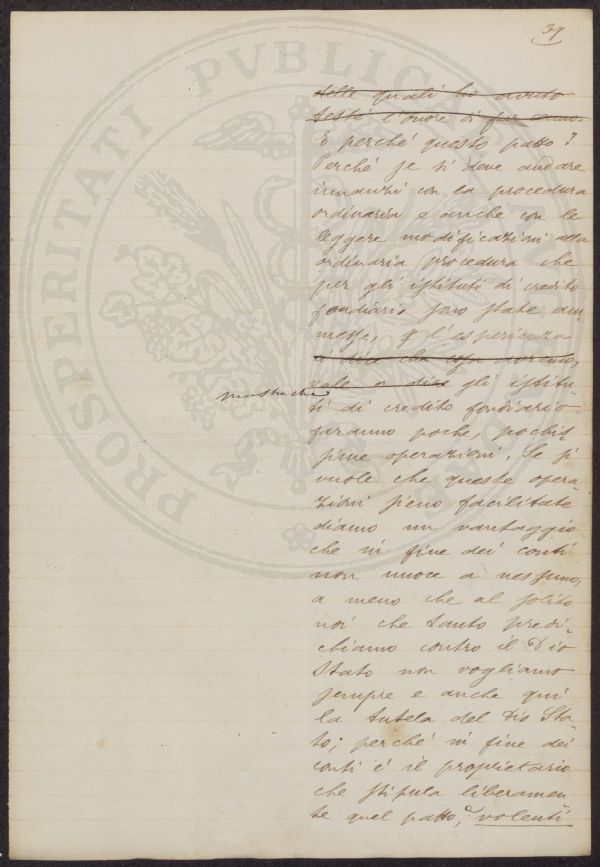 39
delle quali ho avuto
testè l'onore di far cenno.
E perché questo patto?
Perché se si deve andare
innanzi con la procedura
ordinaria e anche con le
leggere modificazioni alla
ordinaria procedura che
per gli istituti di credito
fondiario sono state am-
messe, l'esperienza
a dice che essa
vale a dire gli istitu-
mostra che
ti di credito fondiario
faranno poche, pochis-
sime operazioni. Se si
vuole che queste opera-
zioni sieno facilitate
diamo un vantaggio
che in fine dei conti
non nuoce a nessuno,
a meno che al solito
noi che tanto predi-
chiamo contro il Dio
Stato non vogliamo
sempre e anche qui
la tutela del Dio Sta-
to; perché in fine dei
conti è il proprietario
che stipula liberamen
te quel patto, volenti
PROSPERITATI PVBLICAE